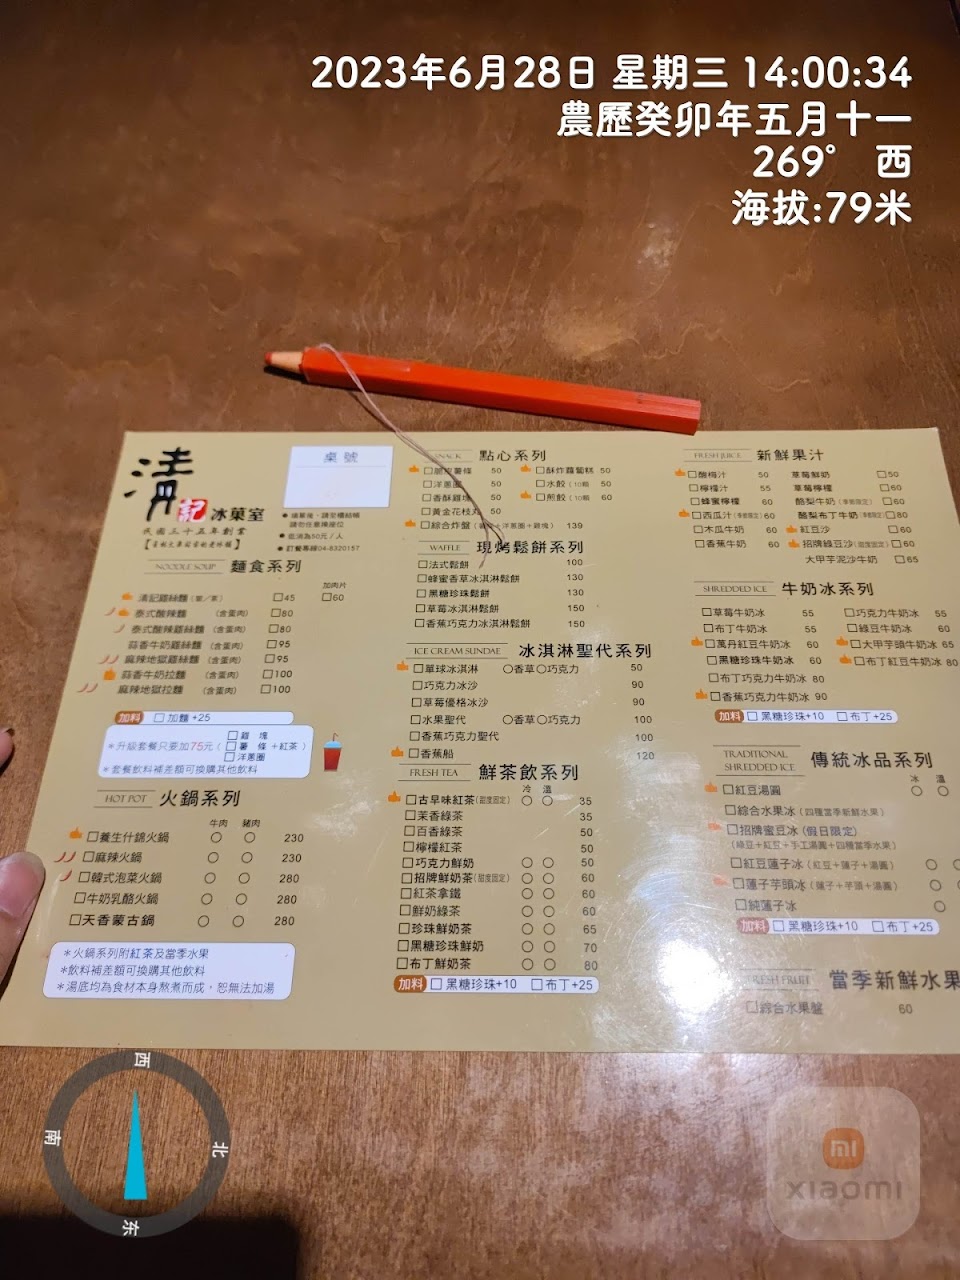 2023年6月28日 星期三 14:00:34
農歷癸卯年五月十一
269° 西
海拔:79米
清記 冰菓室
民國三十五年創業
桌號
填單後、請至櫃結帳
請勿任意換座位
低消為50元/人
訂餐專線04-8320157
NOODLE SOUP 麵食系列
加肉片
清記雞絲麵 45 60
泰式酸辣麵 (含蛋肉) 80
泰式酸辣雞絲麵 (含蛋肉) 80
蒜香牛奶雞絲麵 (含蛋肉) 95
麻辣地獄雞絲麵 (含蛋肉) 95
蒜香牛奶拉麵 (含蛋肉) 100
麻辣地獄拉麵 (含蛋肉) 100
加料 加麵+25
*升級套餐只要加75元 ( 雞塊 薯條 洋蔥圈 +紅茶 )
*套餐飲料補差額可換購其他飲料
HOT POT 火鍋系列
牛肉 豬肉
養生什錦火鍋 230
麻辣火鍋 230
韓式泡菜火鍋 280
牛奶乳酪火鍋 280
天香蒙古鍋 280
*火鍋系列附紅茶及當季水果
*飲料補差額可換購其他飲料
*湯底均為食材本身熬煮而成,恕無法加湯
SNACK 點心系列
脆皮薯條 50 酥炸蘿蔔糕 50
洋蔥圈 50 水餃(10顆) 50
香酥雞塊 50 煎餃(10顆) 60
黃金花枝丸 50
綜合炸盤 (薯條+洋蔥圈+雞塊) 139
WAFFLE 現烤鬆餅系列
法式鬆餅 100
蜂蜜香草冰淇淋鬆餅 130
黑糖珍珠鬆餅 130
草莓冰淇淋鬆餅 150
香蕉巧克力冰淇淋鬆餅 150
ICE CREAM SUNDAE 冰淇淋聖代系列
單球冰淇淋 香草 巧克力 50
巧克力冰沙 90
草莓優格冰沙 90
水果聖代 香草 巧克力 100
香蕉巧克力聖代 100
香蕉船 120
FRESH TEA 鮮茶飲系列
冷 溫
古早味紅茶(甜度固定) 35
茉香綠茶 35
百香綠茶 50
檸檬紅茶 50
巧克力鮮奶 50
招牌鮮奶茶(甜度固定) 60
紅茶拿鐵 60
鮮奶綠茶 60
珍珠鮮奶茶 65
黑糖珍珠鮮奶 70
布丁鮮奶茶 80
加料 黑糖珍珠+10 布丁+25
FRESH JUICE 新鮮果汁
酸梅汁 55 草莓鮮奶 50
檸檬汁 55 草莓檸檬 60
蜂蜜檸檬 60 酪梨牛奶(季節限定) 60
西瓜汁(季節限定) 60 酪梨布丁牛奶(季節限定) 80
木瓜牛奶 60 紅豆沙 60
香蕉牛奶 60 招牌綠豆沙(甜度固定) 60
大甲芋泥沙牛奶 65
SHREDDED ICE 牛奶冰系列
草莓牛奶冰 55 巧克力牛奶冰 55
布丁牛奶冰 55 綠豆牛奶冰 60
萬丹紅豆牛奶冰 60 大甲芋頭牛奶冰 65
黑糖珍珠牛奶冰 60 布丁紅豆牛奶冰 80
布丁巧克力牛奶冰 80
香蕉巧克力牛奶冰 90
加料 黑糖珍珠+10 布丁+25
TRADITIONAL SHREDDED ICE 傳統冰品系列
冰 溫
紅豆湯圓
綜合水果冰(四種當季新鮮水果)
招牌蜜豆冰(假日限定)
(綠豆+紅豆+手工湯圓+四種當季水果)
紅豆蓮子冰(紅豆+蓮子+湯圓)
蓮子芋頭冰(蓮子+芋頭+湯圓)
純蓮子冰
加料 黑糖珍珠+10 布丁+25
FRESH FRUIT 當季新鮮水果
綜合水果盤 60
西
南
北
东
xiaomi